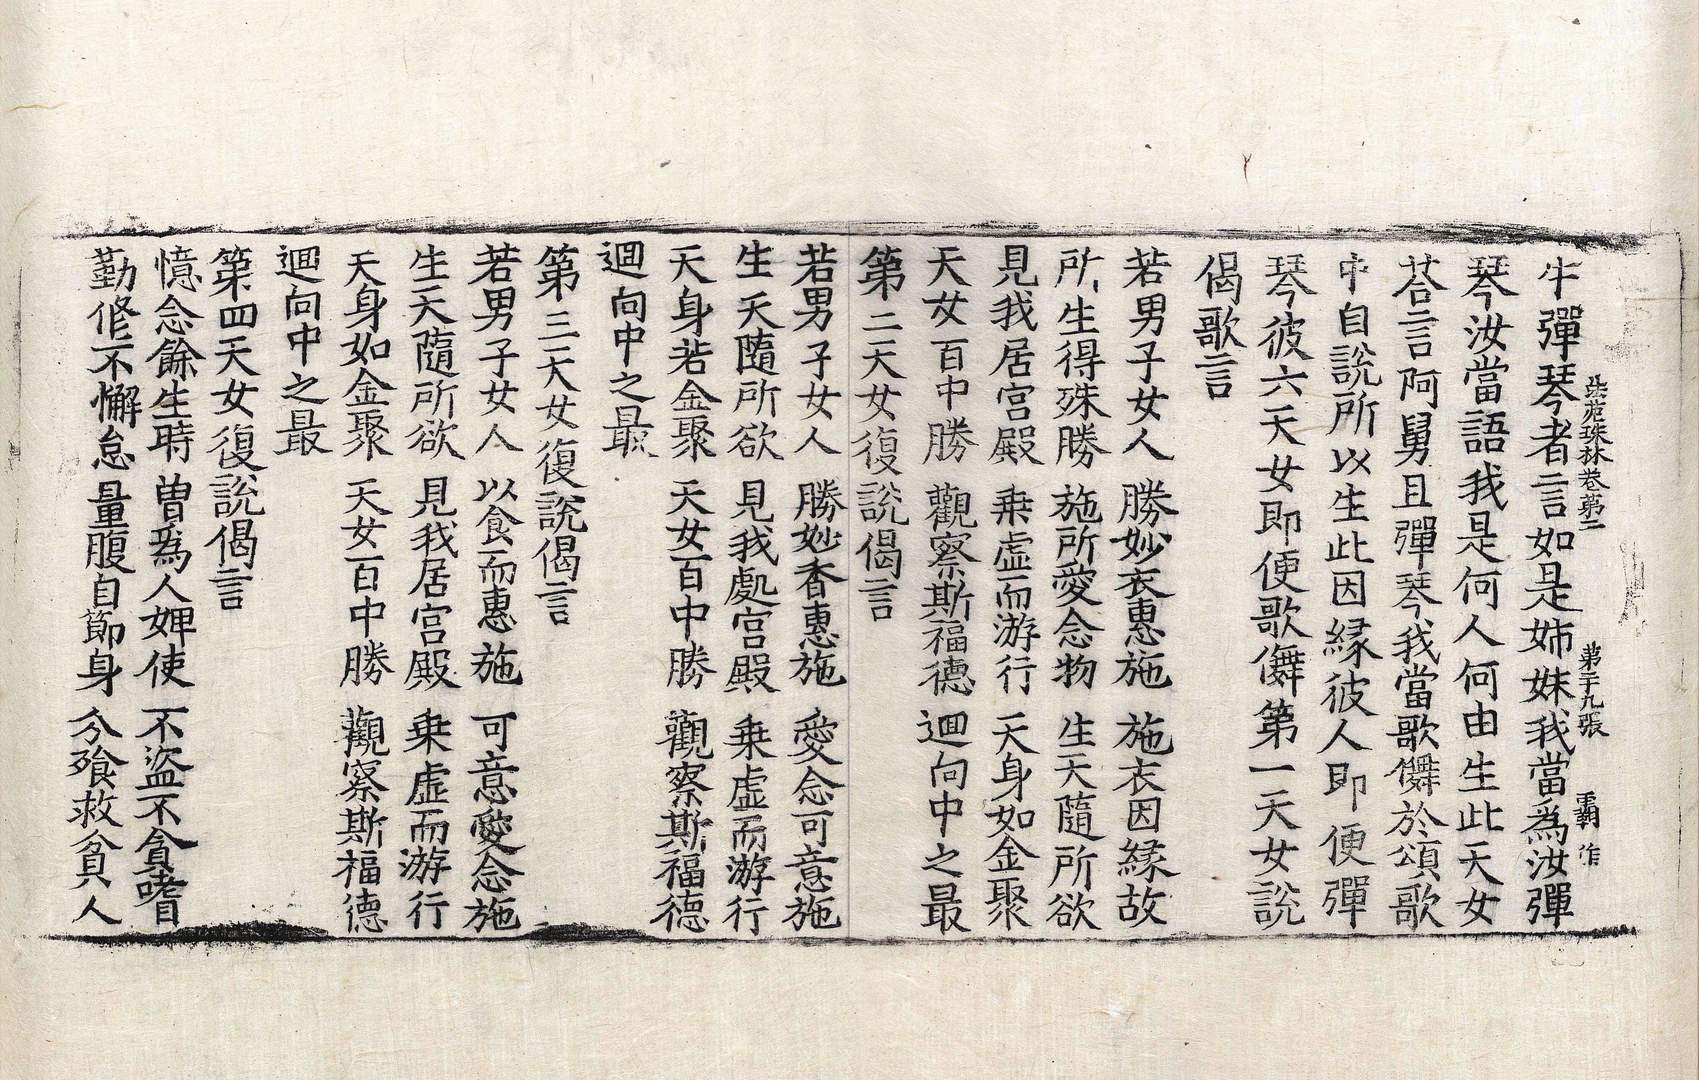 法苑珠林卷第二　第二十九張　覇　作
牛彈琴者言如是姊妹我當爲汝彈
琴汝當語我是何人何由生此天女
荅言阿舅且彈琴我當歌儛於頌歌
中自說所以生此因緣彼人即便彈
琴彼六天女即便歌儛第一天女說
偈歌言
若男子女人　勝妙衣惠施　施衣因緣故
所生得殊勝　施所愛念物　生天隨所欲
見我居宮殿　乗虛而游行　天身如金聚
天女百中勝　觀察斯福德　迴向中之最
第二天女復說偈言
若男子女人　勝妙香惠施　愛念可意施
生天隨所欲　見我處宮殿　乗虛而游行
天身若金聚　天女百中勝　觀察斯福德
迴向中之最
第三天女復說偈言
若男子女人　以食而惠施　可意愛念施
生天隨所欲　見我居宮殿　乗虛而游行
天身如金聚　天女百中勝　觀察斯福德
迴向中之最
第四天女復說偈言
憶念餘生時　曽爲人婢使　不盜不貪嗜
勤修不懈怠　量腹自節身　分飱救貧人